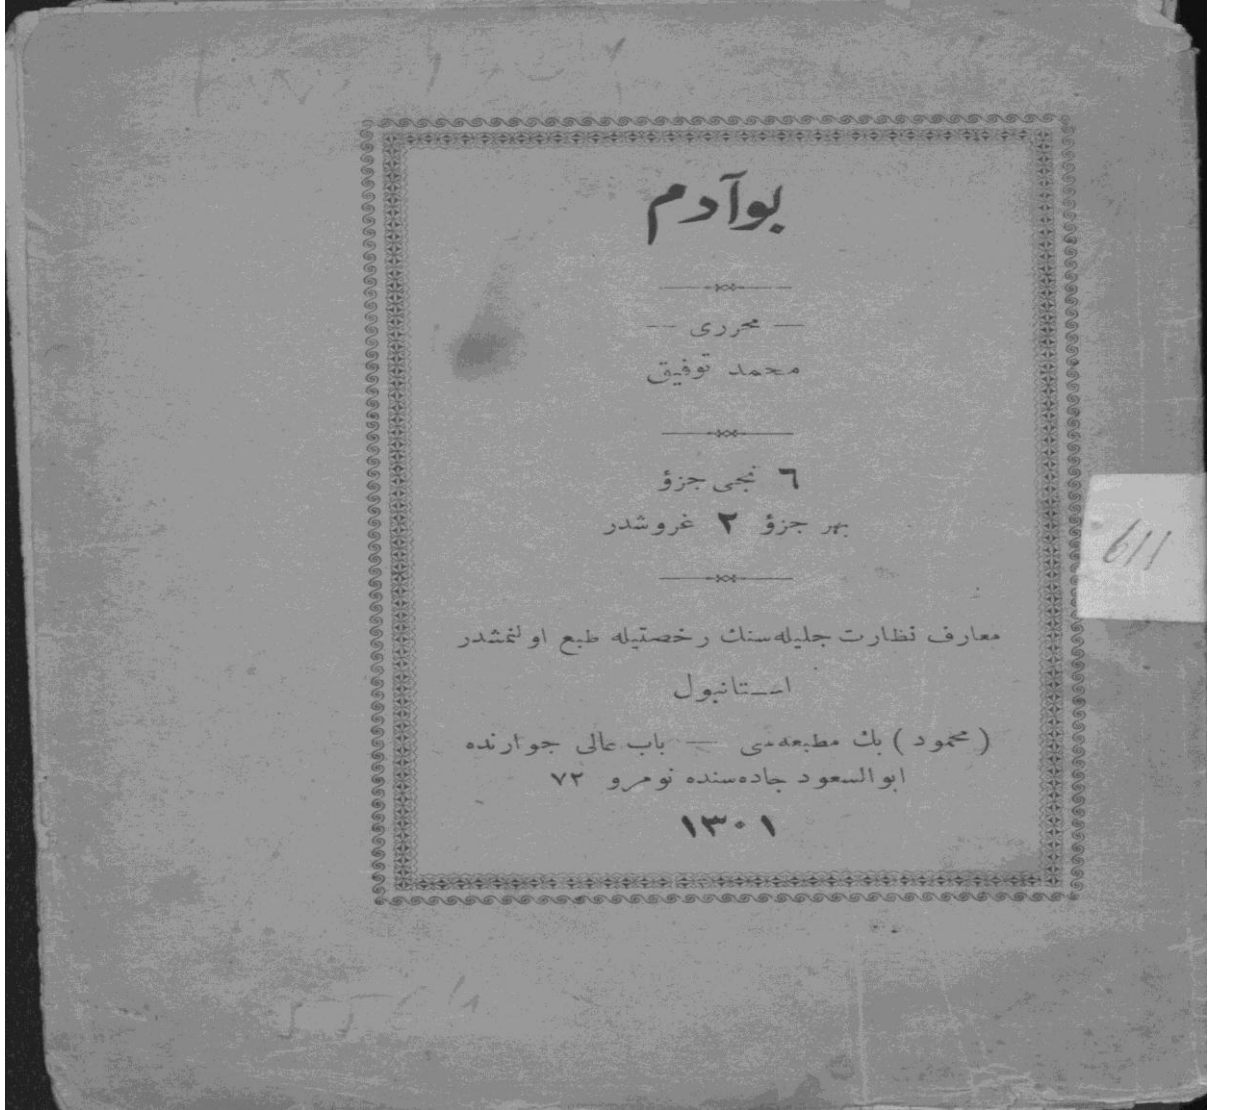 بو آدم
— محرری —
محمد توفیق
٦ نجی جزؤ
بهر جزؤ ٢ غروشدر
معارف نظارت جلیله‌سنك رخصتیله طبع اولنمشدر
استانبول
( محمود ) بك مطبعه‌سی — باب عالی جوارنده
ابو السعود جاده‌سنده نومرو ٧٢
١٣٠١
611